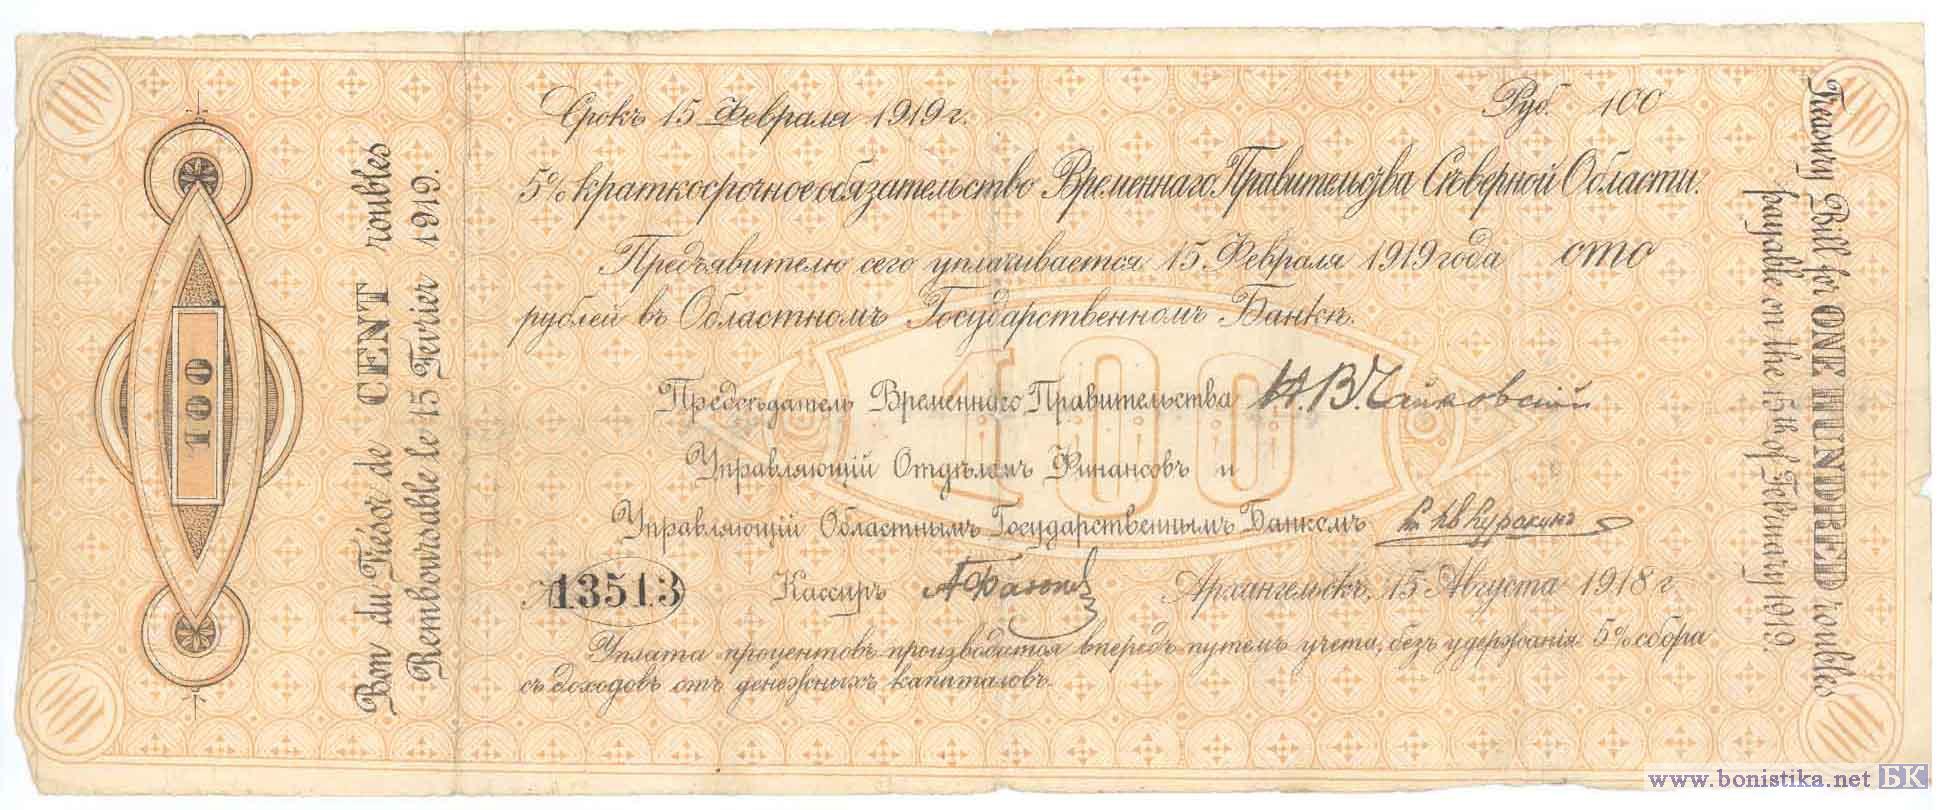 100
100
Срокъ 15 Февраля 1919 г. Руб. 100
5% краткосрочное обязательство Временнаго Правительства Сѣверной Области.
Предъявителю сего уплачивается 15 Февраля 1919 года сто
рублей въ Областномъ Государственномъ Банкѣ.
100
Предсѣдатель Временнаго Правительства Н. В. Чайковскій
Управляющій Отдѣломъ Финансовъ и
Управляющій Областнымъ Государственнымъ Банкомъ кн. Ив Куракинъ
13513 Кассиръ Архангельскъ, 15 Августа 1918 г.
Уплата процентовъ производится впередъ путемъ учета, безъ удержанія 5% сбора
съ доходовъ отъ денежныхъ капиталовъ.
100
Bon du Trésor de CENT roubles
Remboursable le 15 Fevrier 1919.
Treasury Bill for ONE HUNDRED roubles
payable on the 15th of February 1919.
100
100
www.bonistika.net БК